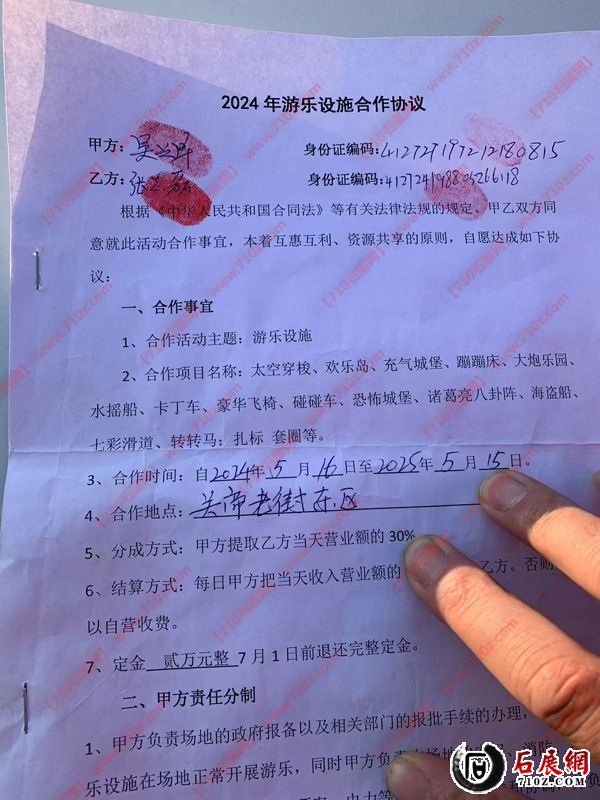 2024年游乐设施合作协议
甲方： 身份证编码:412729197212180815
乙方：张 身份证编码:
根据《中华人民共和国合同法》等有关法律法规的规定、甲乙双方同
意就此活动合作事宜，本着互惠互利、资源共享的原则，自愿达成如下协
议：
一、合作事宜
1、合作活动主题：游乐设施
2、合作项目名称：太空穿梭、欢乐岛、充气城堡、蹦蹦床、大炮乐园、
水摇船、卡丁车、豪华飞椅、碰碰车、恐怖城堡、诸葛亮八卦阵、海盗船、
七彩滑道、转转马；扎标 套圈等。
3、合作时间：自2024年5月16日至2025年5月15日。
4、合作地点：关帝老街东区
5、分成方式：甲方提取乙方当天营业额的30%
6、结算方式：每日甲方把当天收入营业额的 乙方。否则
以自营收费。
7、定金 贰万元整 7月1日前退还完整定金。
二、甲方责任分制
1、甲方负责场地的政府报备以及相关部门的报批手续的办理，
乐设施在场地正常开展游乐，同时甲方负责
石展網
710z.com